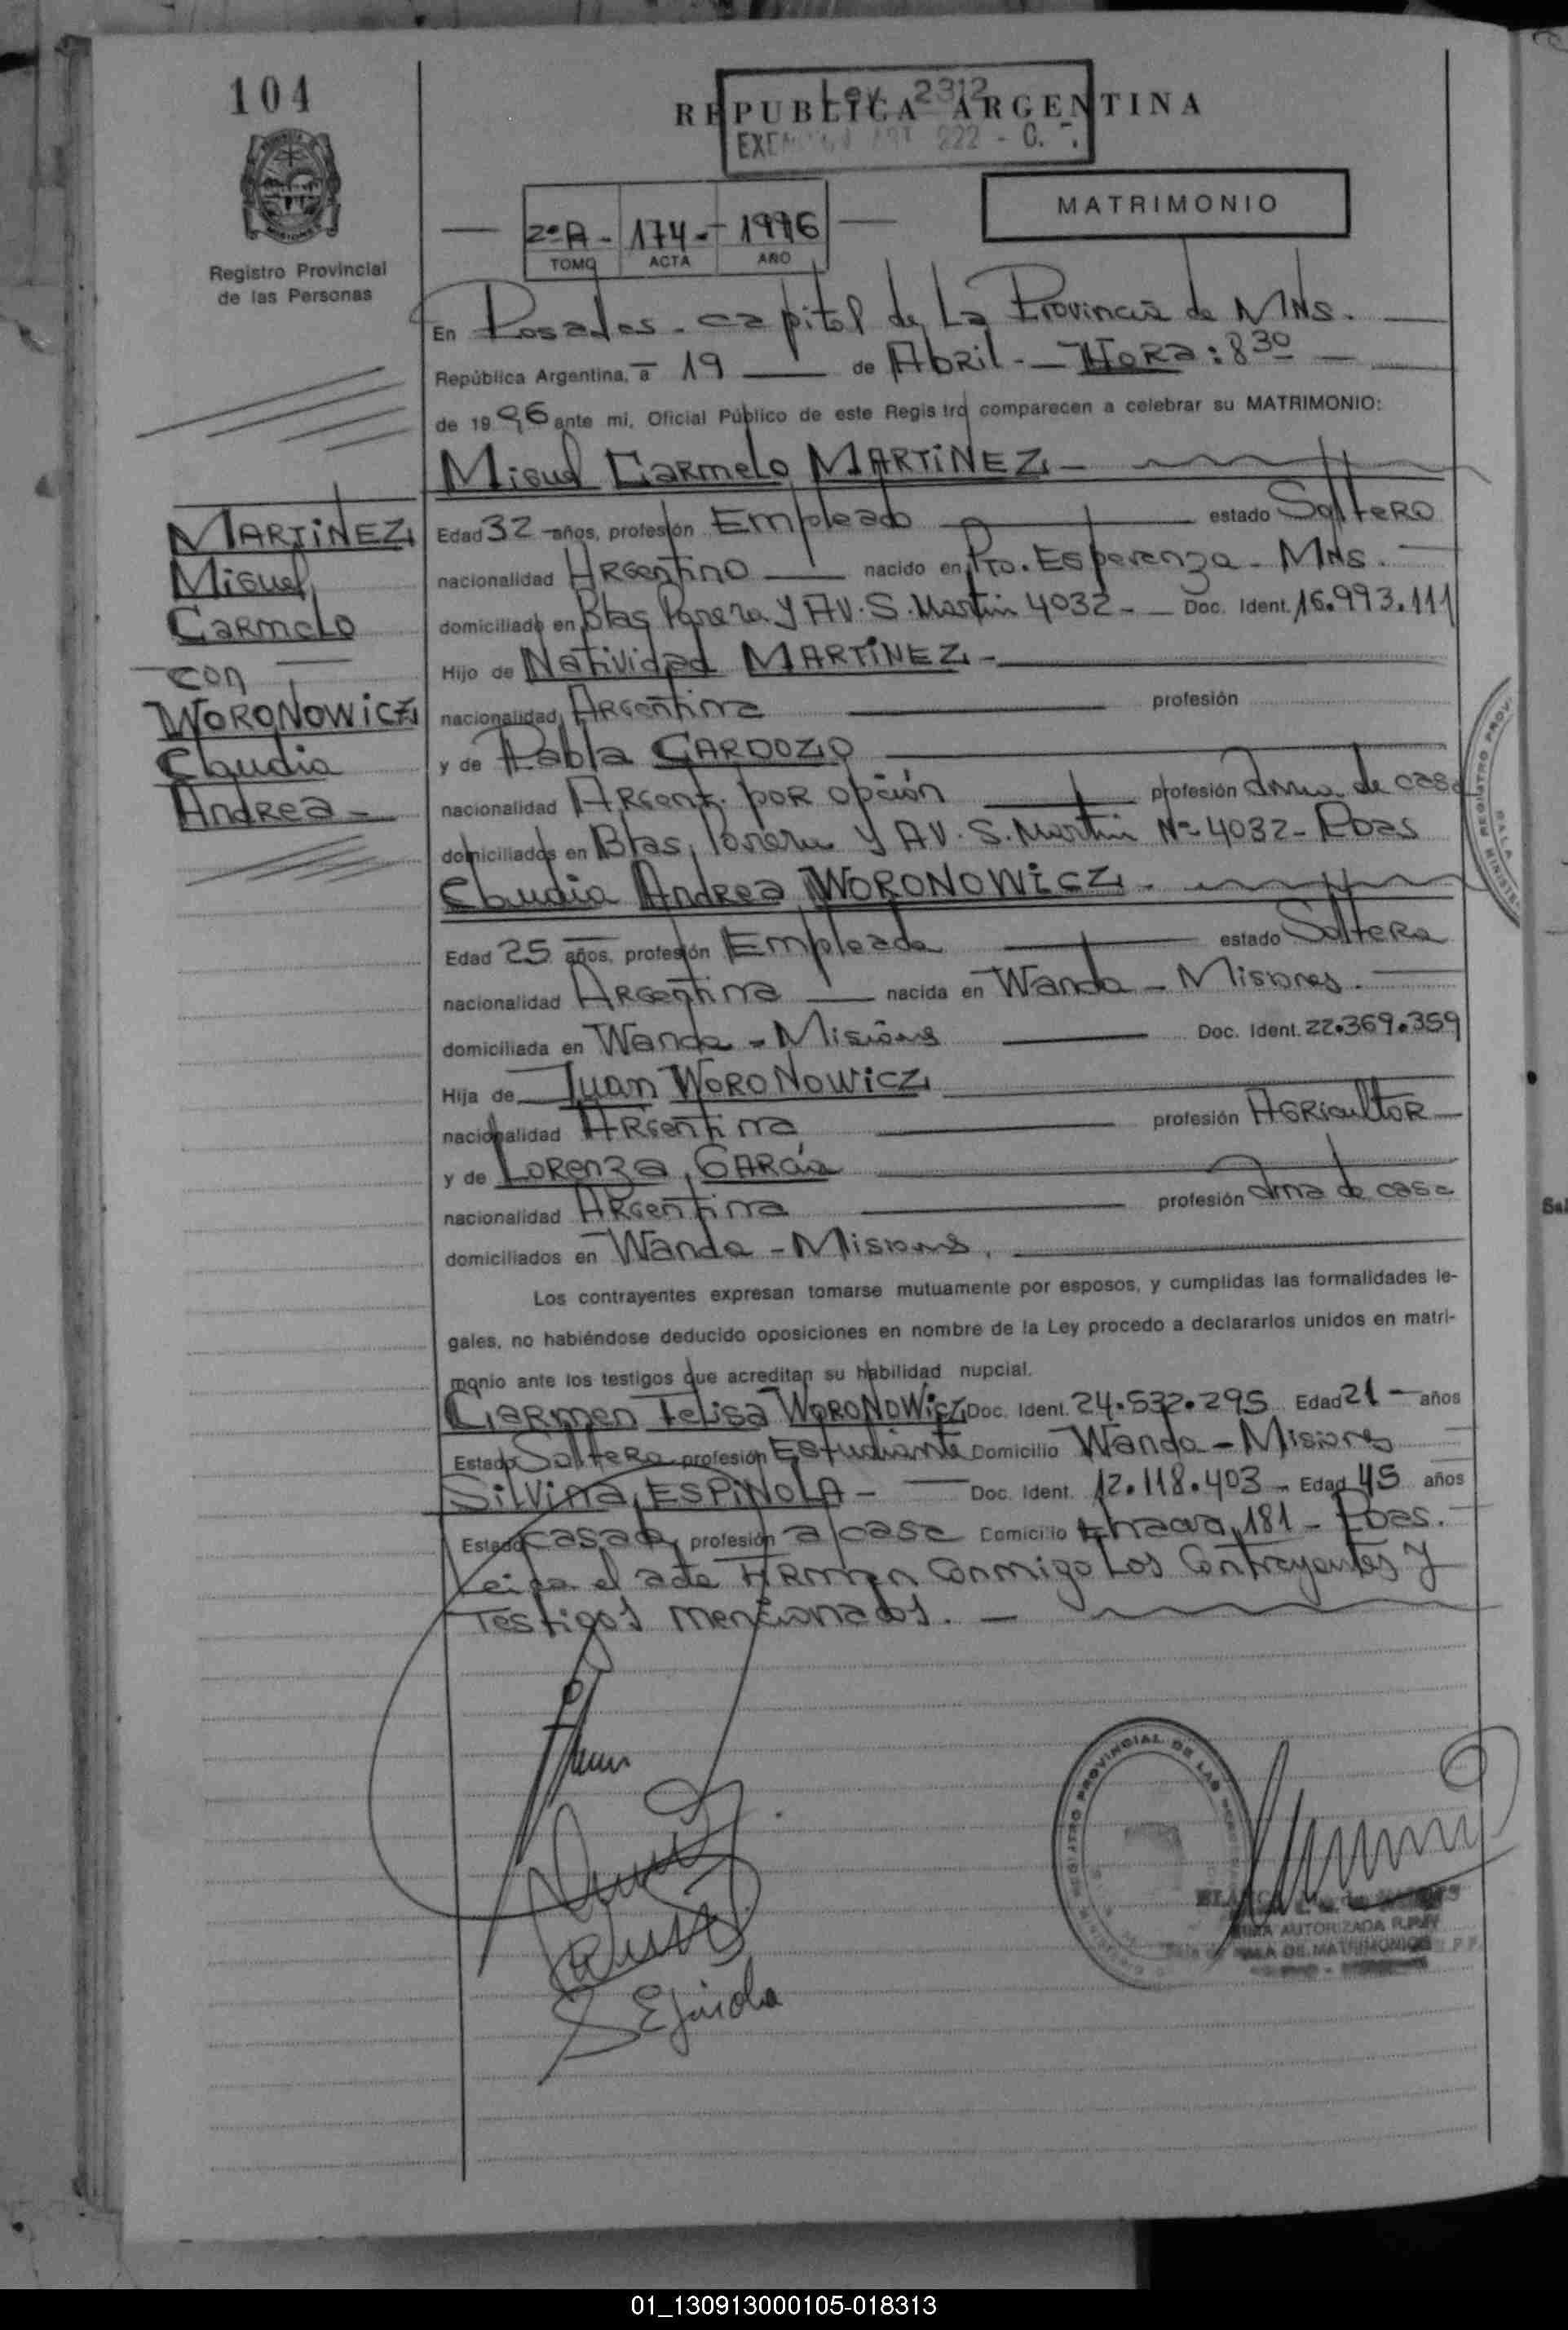 104
Ley 2312
REPUBLICA ARGENTINA
222 - C.
MATRIMONIO
2º A - 174 - 1996
TOMO ACTA AÑO
Registro Provincial
de las Personas
En Posadas - capital de La Provincia de MNS.
República Argentina, a 19 de Abril - Hora: 8 30
de 1996 ante mi, Oficial Público de este Registro comparecen a celebrar su MATRIMONIO:
Miguel Carmelo MARTINEZ -
Edad 32 años, profesión Empleado estado Soltero
nacionalidad Argentino nacido en Pto. Esperanza - MNS.
domiciliado en Blas Parera y AV. S. Martin 4032 - Doc. Ident. 16.993.111
Hijo de Natividad MARTINEZ -
nacionalidad Argentina profesión
y de Pabla CARDOZO
nacionalidad Argent. por opción profesión Ama de casa
domiciliados en Blas Parera y AV. S. Martin Nº 4032 - Pdas
Claudia Andrea WORONOWICZ -
Edad 25 años, profesión Empleada estado Soltera
nacionalidad Argentina nacida en Wanda - Misiones.
domiciliada en Wanda - Misiones Doc. Ident. 22.369.359
Hija de Juan WORONOWICZ
nacionalidad Argentina profesión Agricultor
y de Lorenza GARCIA
nacionalidad Argentina profesión Ama de casa
domiciliados en Wanda - Misiones.
Los contrayentes expresan tomarse mutuamente por esposos, y cumplidas las formalidades le-
gales, no habiéndose deducido oposiciones en nombre de la Ley procedo a declararlos unidos en matri-
monio ante los testigos que acreditan su habilidad nupcial.
Carmen Felisa WORONOWICZ Doc. Ident. 24.532.295 Edad 21 - años
Estado Soltera profesión Estudiante Domicilio Wanda - Misiones
Silvina ESPINOLA - Doc. Ident. 12.118.403 - Edad 45 años
Estado casada profesión a/casa Domicilio 181 - Pdas.
Leida el acta Firman conmigo Los Contrayentes y
Testigos mencionados. -
MARTINEZ
Miguel
Carmelo
con
WORONOWICZ
Claudia
Andrea -
REGISTRO PROVINCIAL DE LAS
AUTORIZADA
SALA DE MATRIMONIOS
01_130913000105-018313